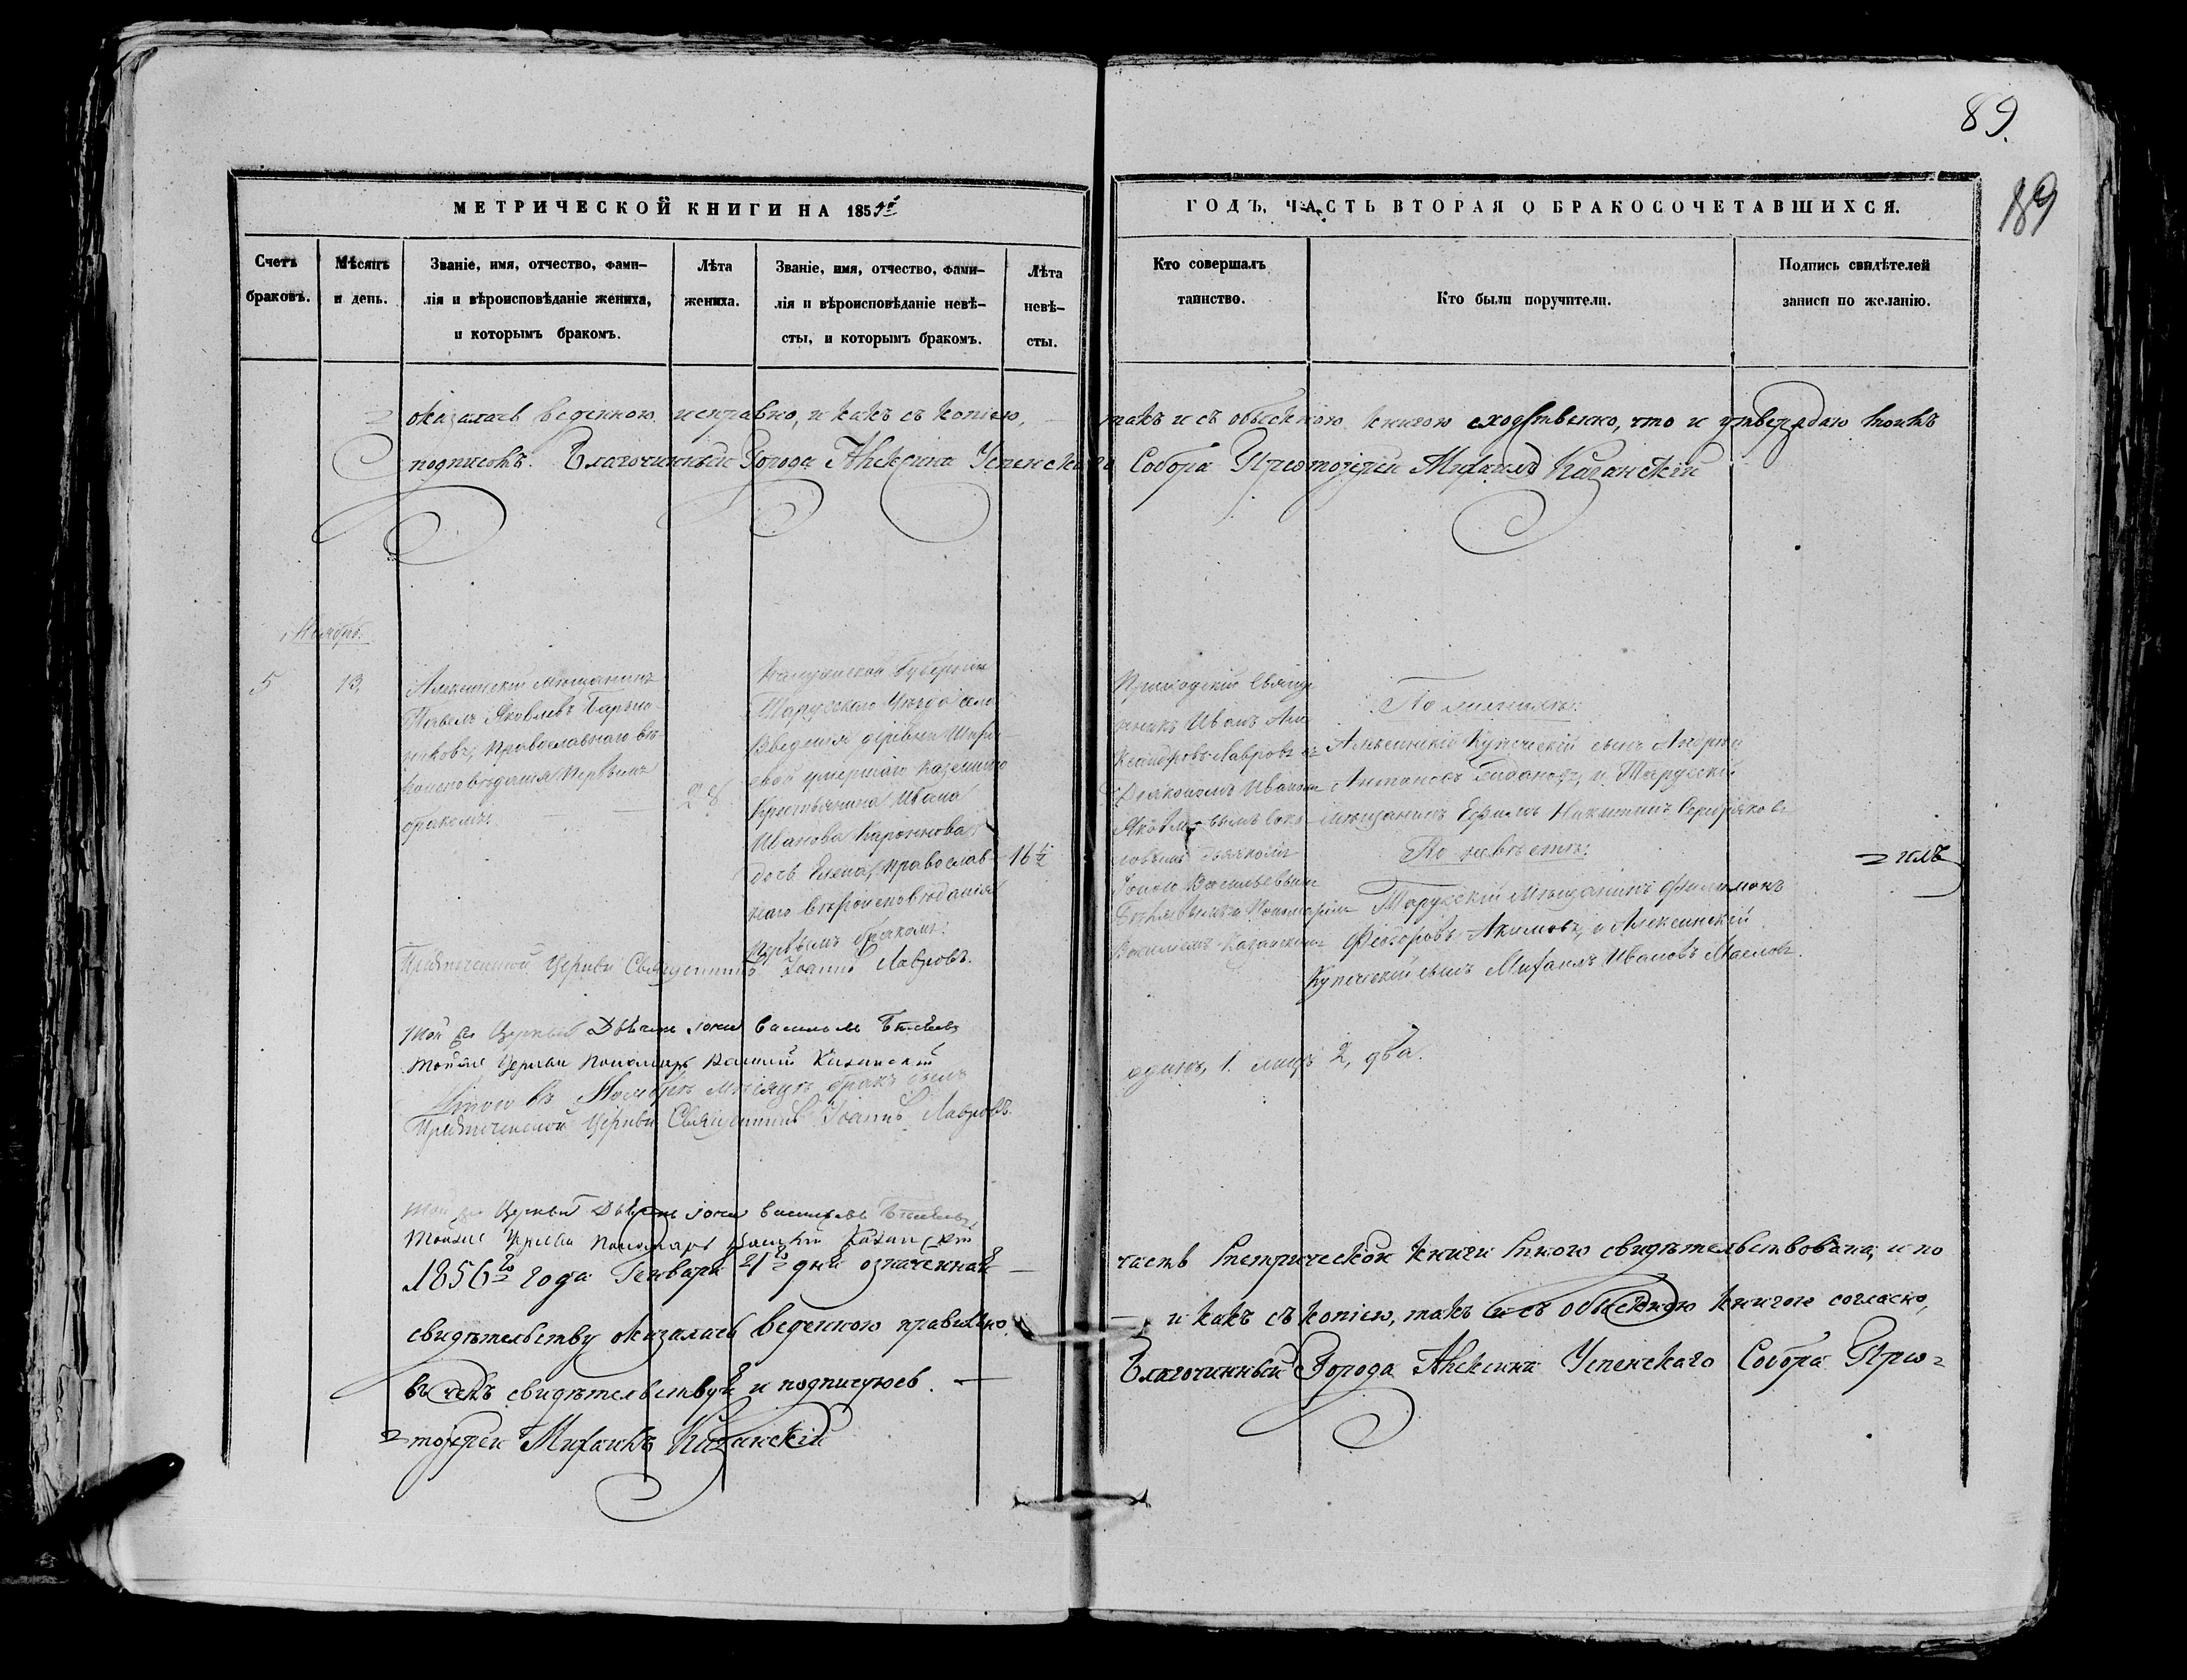 89.
189
МЕТРИЧЕСКОЙ КНИГИ НА 1855й
ГОДЪ, ЧАСТЬ ВТОРАЯ О БРАКОСОЧЕТАВШИХСЯ.
Счетъ
браковъ.
Мѣсяцъ
и день.
Званіе, имя, отчество, фами-
лія и вѣроисповѣданіе жениха,
и которымъ бракомъ.
Лѣта
жениха.
Званіе, имя, отчество, фами-
лія и вѣроисповѣданіе невѣ-
сты, и которымъ бракомъ.
Лѣта
невѣ-
сты.
Кто совершалъ
таинство.
Кто были поручители.
Подпись свидѣтелей
записи по желанію.
оказалась веденною исправно, и какъ съ копіею, такъ и съ обыскною книгою сходственно, что и утверждаю моимъ
подписомъ. Благочинный Города Алексина Успенскаго Собора Протоіерей Михаилъ Казанскій
Ноябрь.
5
13.
Алексинскій мѣщанинъ
Павелъ Яковлевъ
Православнаго вѣ
роисповѣданія первымъ
бракомъ.
28
Калужской Губерніи
Тарусскаго Уѣзда села
Введенья деревни
умершаго казеннаго
Крестьянина Ивана
Иванова
дочь Елена, Православ-
наго вѣроисповѣданія
первымъ бракомъ.
16 ½
Приходскій Свяще
нникъ Иванъ Але
ксандровъ Лавровъ съ
Діакономъ Иваномъ
дьячкомъ
Іоною Васильевымъ
и Пономаремъ
Василіемъ Казанскимъ
По женихѣ:
Алексинскій Купеческій сынъ Андрей
Антоновъ и Тарусскій
мѣщанинъ Ефимъ Никитинъ Серебряковъ
По невѣстѣ:
Тарусскій Мѣщанинъ Филимонъ
Ѳеодоровъ Акимовъ, и Алексинскій
Купеческій сынъ Михаилъ Ивановъ Масловъ.
Предтеченской Церкви Священникъ Іоаннъ Лавровъ.
Той же Церкви Дьячекъ Іона Васильевъ
Тойже Церкви Пономарь Василій Казанскій
Итого въ Ноябрѣ мѣсяцѣ бракъ былъ
одинъ, 1. лицъ 2, два.
Предтеченской Церкви Священникъ Іоаннъ Лавровъ.
Той же Церкви Дьячекъ Іона Васильевъ
Тойже Церкви Пономарь Василій Казанскій
1856го года Генваря 21го дня означенная часть метрической книги мною свидѣтельствована, и по
свидѣтельству оказалась веденною правильно, и какъ съ копіею, такъ и съ обыскною книгою согласно,
въ чемъ свидѣтельствуя и подписуюсь. Благочинный Города Алексина Успенскаго Собора Про-
тоіерей Михаилъ Казанскій